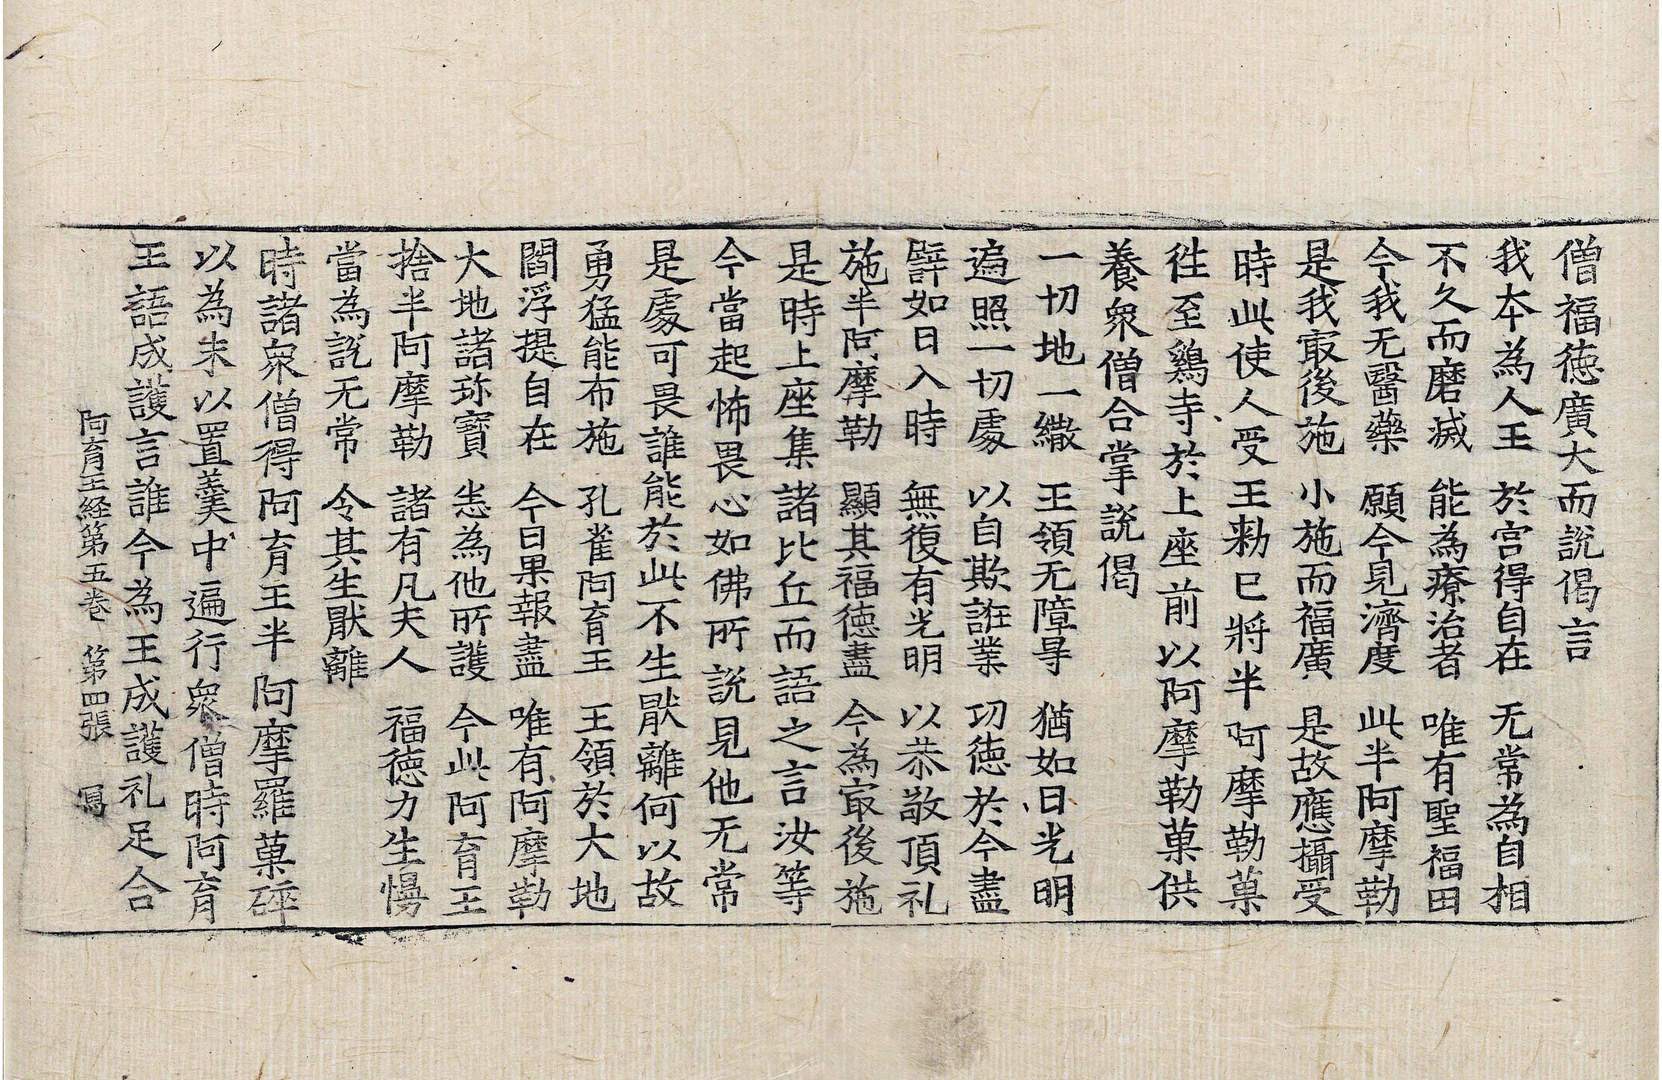 僧福徳廣大而說偈言
我本為人王　於宮得自在　无常為自相
不久而磨滅　能為療治者　唯有聖福田
今我无醫藥　願今見濟度　此半阿摩勒
是我㝡後施　小施而福廣　是故應攝受
時此使人受王勑已將半阿摩勒菓
徃至鷄寺於上座前以阿摩勒菓供
養衆僧合掌說偈
一切地一繖　王領无障㝵　猶如日光明
遍照一切處　以自欺誑業　功徳於今盡
譬如日入時　無復有光明　以恭敬頂礼
施半阿摩勒　顯其福徳盡　今為㝡後施
是時上座集諸比丘而語之言汝等
今當起怖畏心如佛所說見他无常
是處可畏誰能於此不生厭離何以故
勇猛能布施　孔雀阿育王　王領於大地
閻浮提自在　今日果報盡　唯有阿摩勒
大地諸珎寶　恙為他所護　今此阿育王
捨半阿摩勒　諸有凡夫人　福徳力生慢
當為說无常　令其生厭離
時諸衆僧得阿育王半阿摩羅菓碎
以為末以置羹中遍行衆僧時阿育
王語成護言誰今為王成護礼足合
阿育王経第五巻　第四張　冩